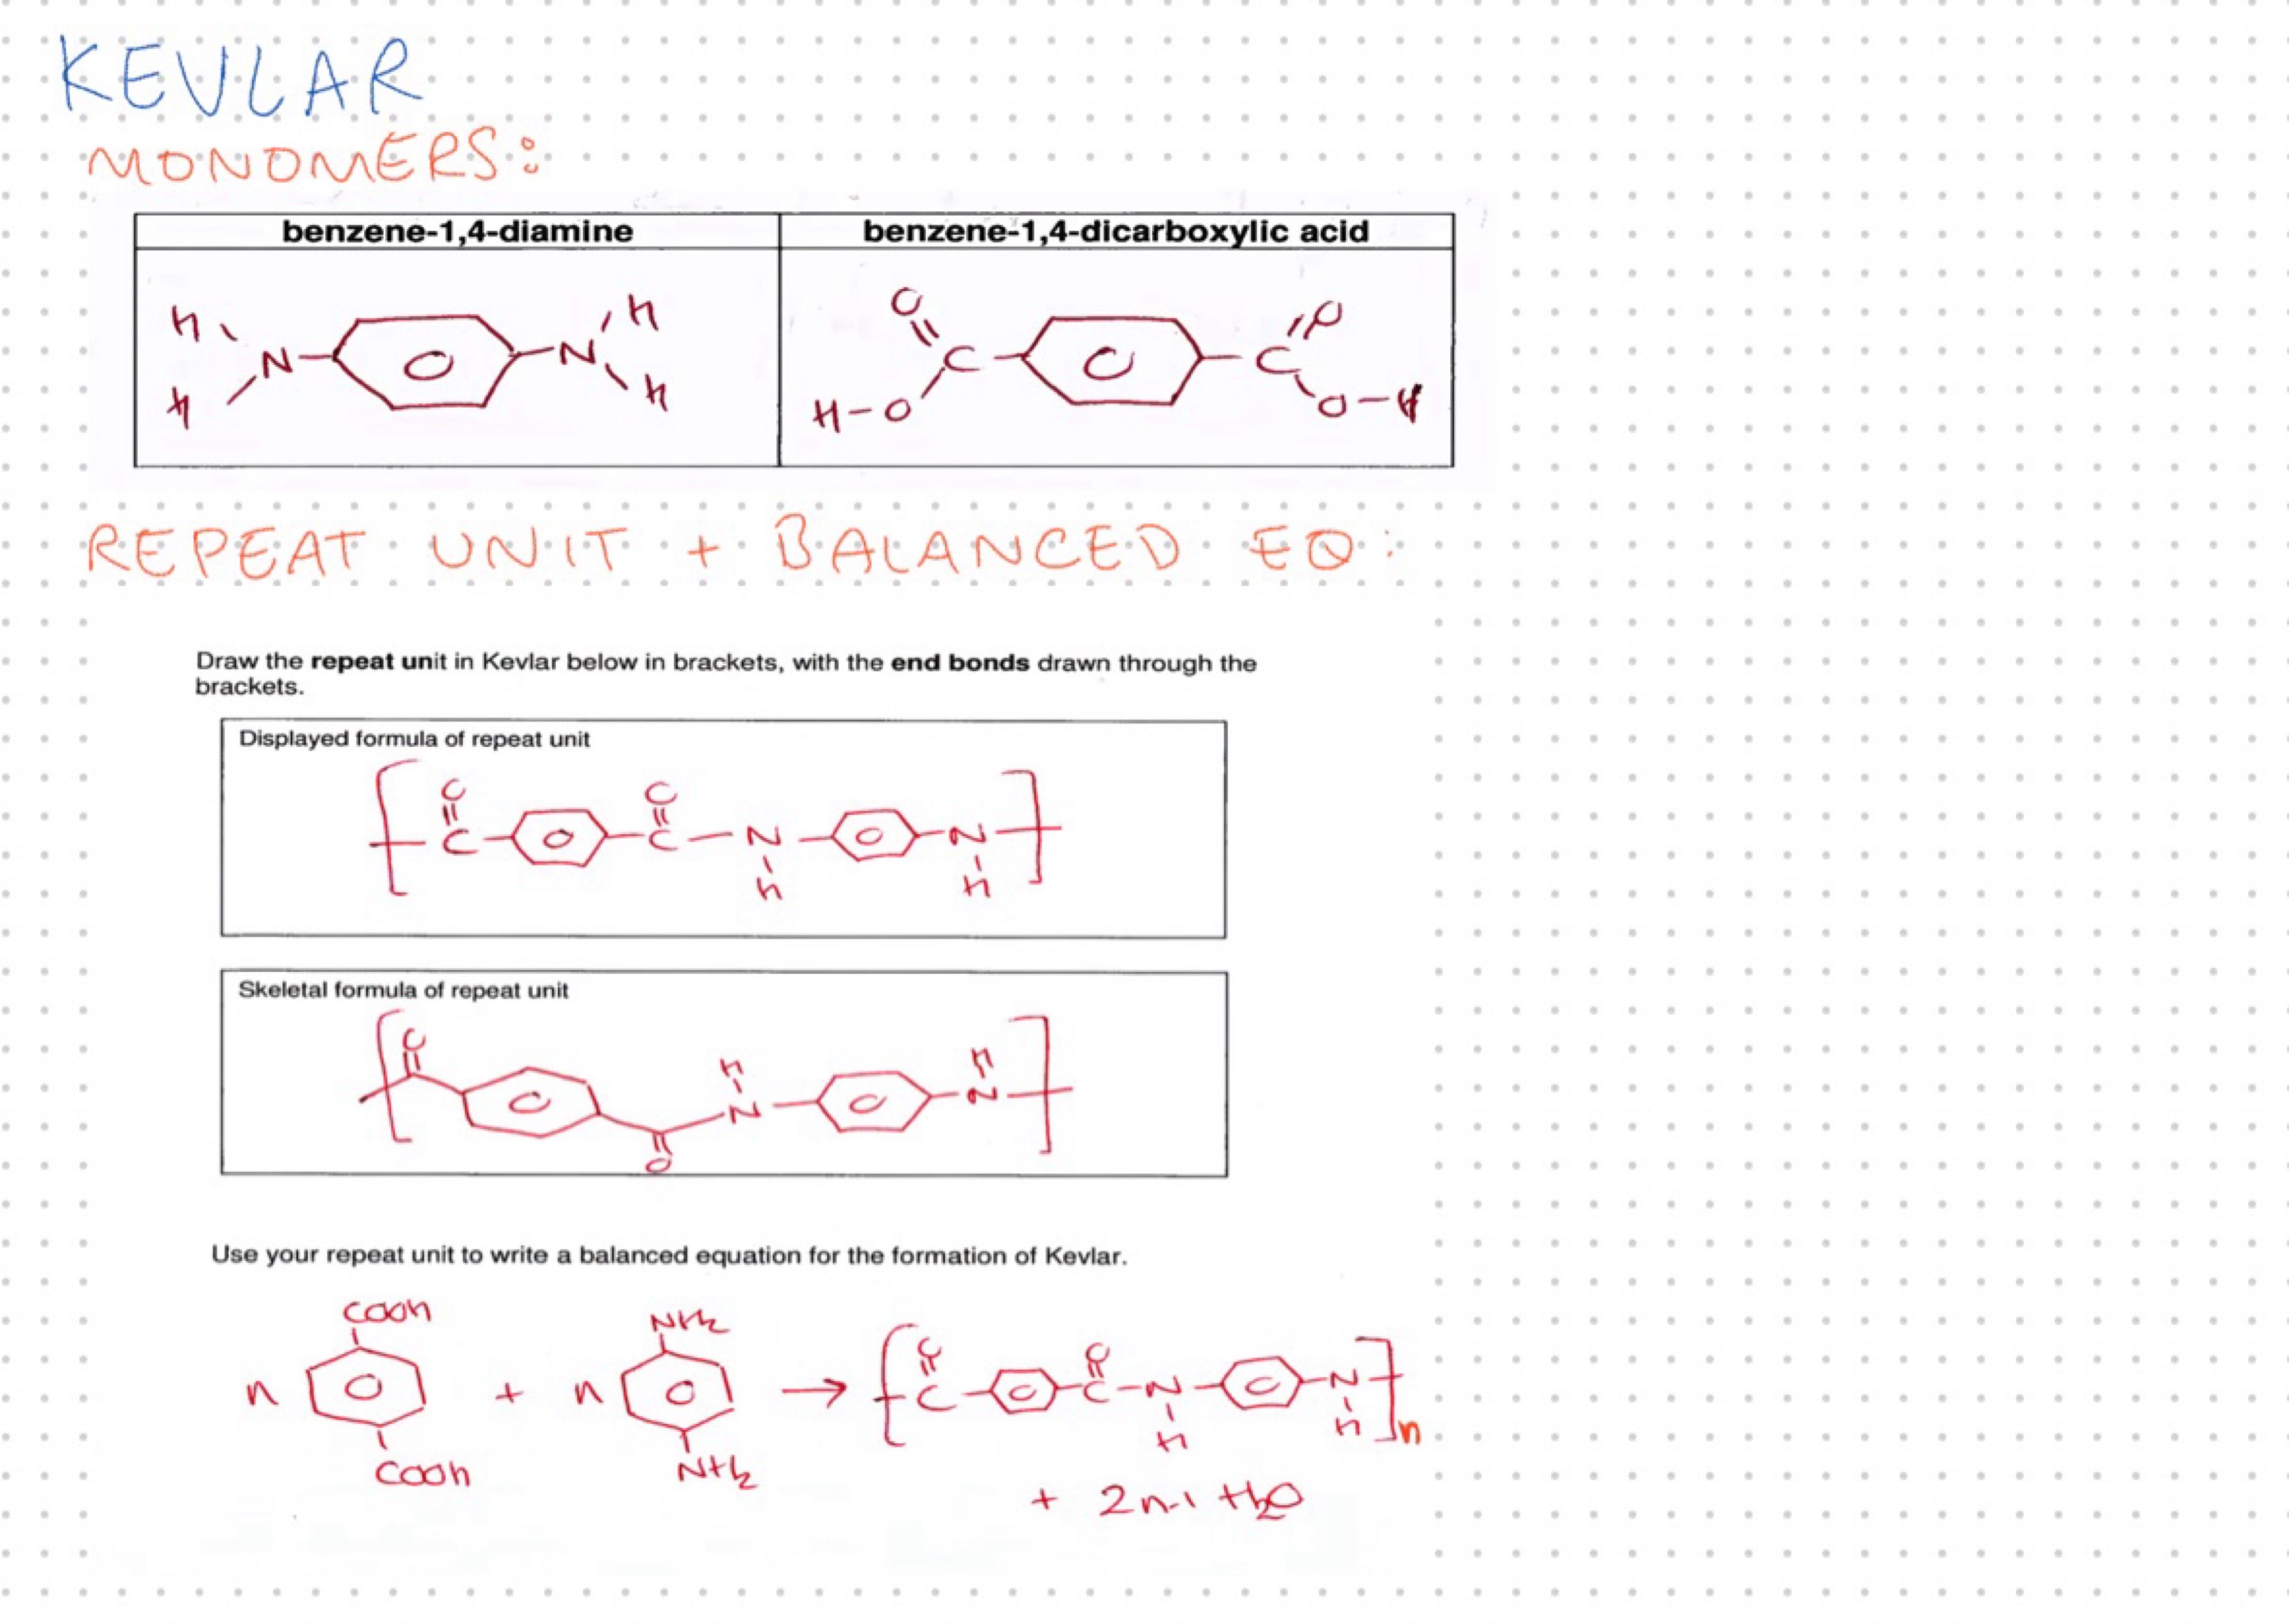 KEVLAR
MONOMERS:
benzene-1,4-diamine
benzene-1,4-dicarboxylic acid
H H
N N
H H
O O
C C
H-O O-H
REPEAT UNIT + BALANCED EQ:
Draw the repeat unit in Kevlar below in brackets, with the end bonds drawn through the
brackets.
Displayed formula of repeat unit
O O
C C N N
H H
Skeletal formula of repeat unit
O H H
N N
O
Use your repeat unit to write a balanced equation for the formation of Kevlar.
COOH NH2 O O
n + n → C C-N N
H H n
COOH NH2
+ 2n-1 H2O